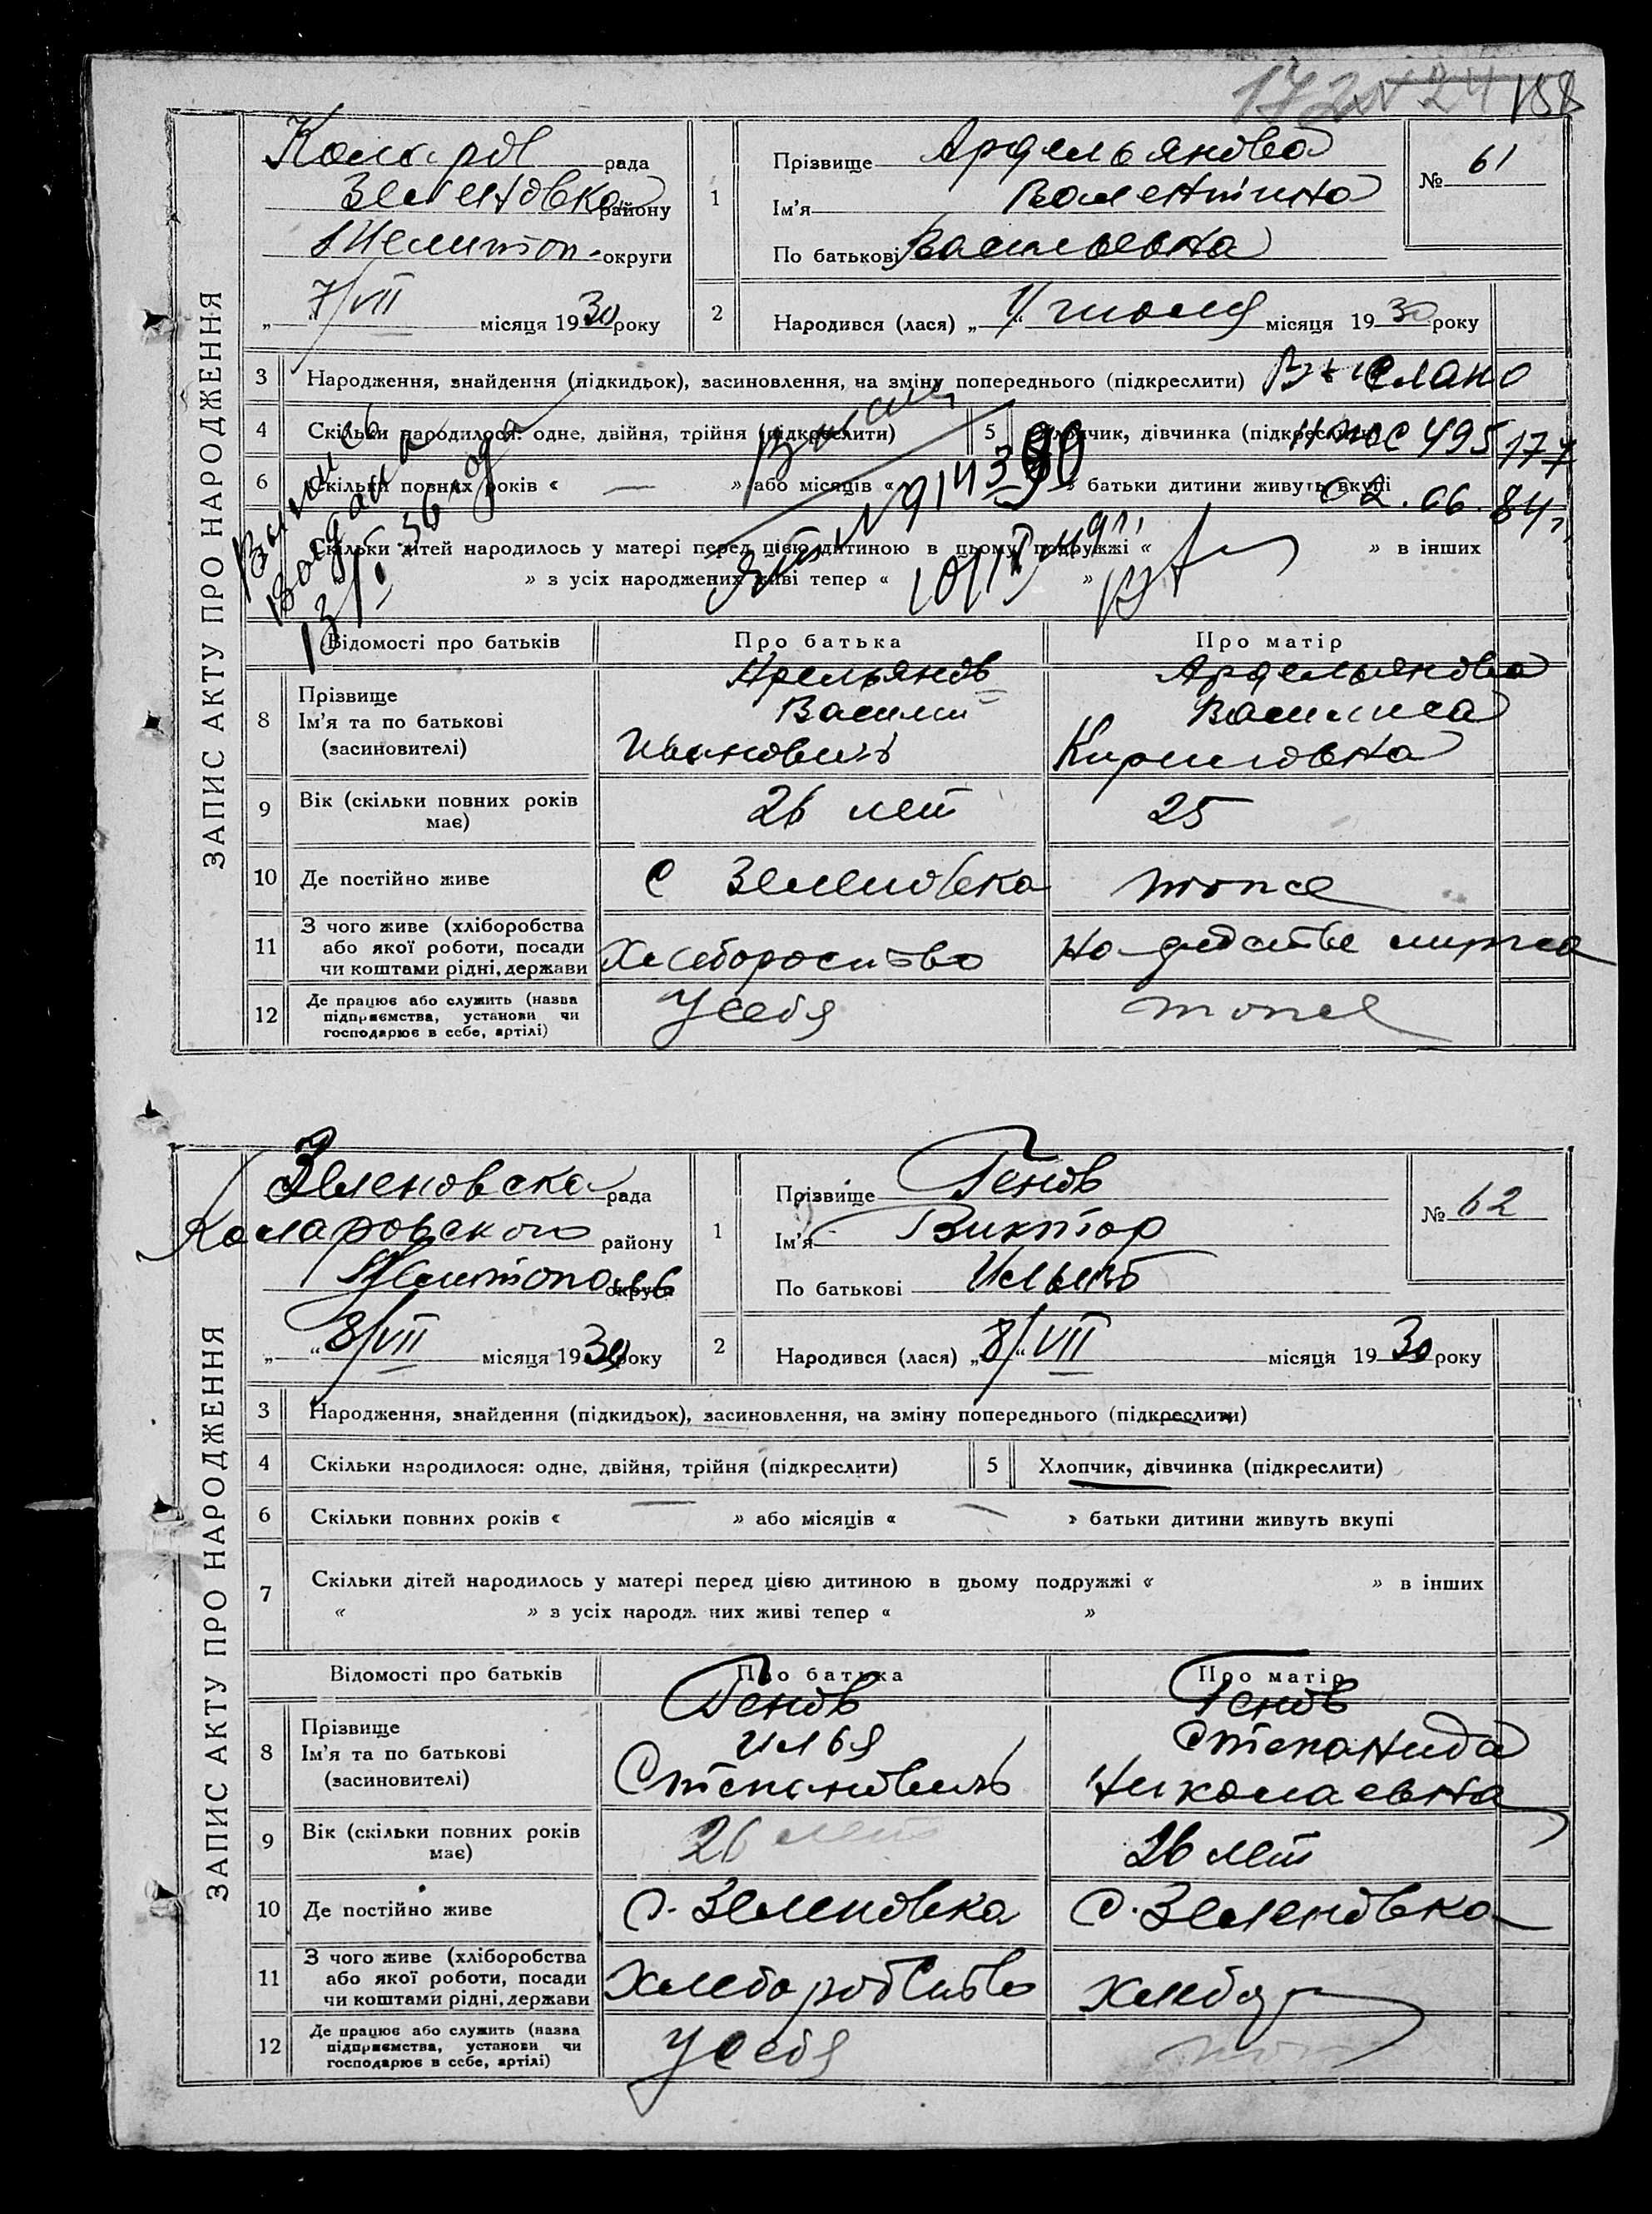 172 24 158
ЗАПИС АКТУ ПРО НАРОДЖЕННЯ
Коларов рада
Зеленовка району
Мелитоп. округи
„ 7/VII місяця 1930 року
1
Прізвище Ардельянова
Ім'я Валентина
По батькові Васильевна
№ 61
2 Народився (лася) „ 1/ “ июля місяця 1930 року
3 Народження, знайдення (підкидьок), засиновлення, на зміну попереднього (підкреслити) Выслано
4 Скільки народилося: одне, двійня, трійня (підкреслити)
5 Хлопчик, дівчинка (підкреслити) 495177
6 Скільки повних років « — » або місяців « » батьки дитини живуть вкупі
02.06.84г.
Скільки дітей народилось у матері перед цією дитиною в цьому подружжі « » в інших
» з усіх народжених живі тепер « »
Выпись
выдана
13/I 36 года
Відомості про батьків Про батька Про матір
8 Прізвище
Ім'я та по батькові
(засиновителі)
Арельянов
Василий
Иванович
Ардельянова
Василиса
Кириловна
9 Вік (скільки повних років має) 26 лет 25
10 Де постійно живе с Зеленовка тоже
11 З чого живе (хліборобства або якої роботи, посади чи коштами рідні, держави Хлеборобство на средстве мужа
12 Де працює або служить (назва підприємства, установи чи господарює в себе, артілі) У себя тоже
ЗАПИС АКТУ ПРО НАРОДЖЕННЯ
Зеленовска рада
Коларовского району
Мелитополь округи
„ “ 8/VII місяця 1930 року
1
Прізвище Генов
Ім'я Виктор
По батькові Ильич
№ 62
2 Народився (лася) „ 8/“ VII місяця 1930 року
3 Народження, знайдення (підкидьок), засиновлення, на зміну попереднього (підкреслити)
4 Скільки народилося: одне, двійня, трійня (підкреслити)
5 Хлопчик, дівчинка (підкреслити)
6 Скільки повних років « — » або місяців « — » батьки дитини живуть вкупі
7 Скільки дітей народилось у матері перед цією дитиною в цьому подружжі « » в інших
« » з усіх народж них живі тепер « »
Відомості про батьків Про батька Про матір
8 Прізвище
Ім'я та по батькові
(засиновителі)
Генов
Илья
Степанович
Генов
Степанида
Николаевна
9 Вік (скільки повних років має) 26 лет 26 лет
10 Де постійно живе с. Зеленовка с. Зеленовка
11 З чого живе (хліборобства або якої роботи, посади чи коштами рідні, держави Хлеборобство Хлебор
12 Де працює або служить (назва підприємства, установи чи господарює в себе, артілі) У себя